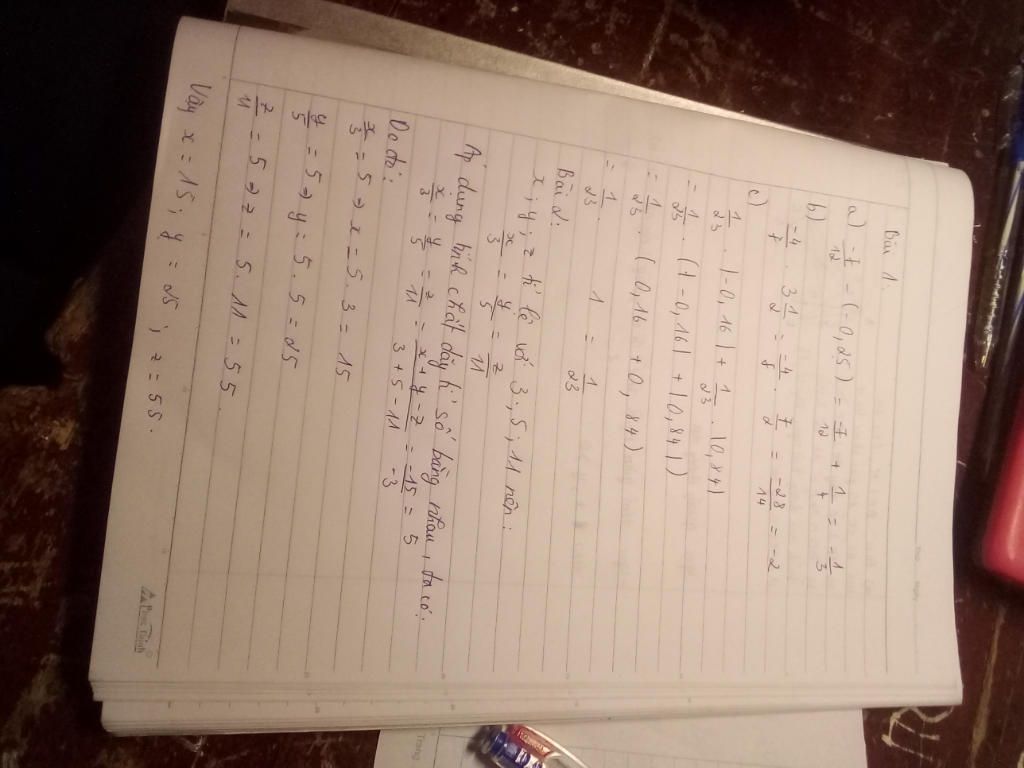 Bài 1.
a) -7/12 - (-0,25) = -7/12 + 1/4 = -1/3
b)
-4/7 . 3 1/2 = -4/7 . 7/2 = -28/14 = -2
c)
1/23 . |-0,16| + 1/23 . |0,84|
= 1/23 . (|-0,16| + |0,84|)
= 1/23 . (0,16 + 0,84)
= 1/23 . 1 = 1/23
Bài 2:
x, y, z tỉ lệ với 3, 5, 11 nên:
x/3 = y/5 = z/11
Áp dụng tính chất dãy tỉ số bằng nhau, ta có:
x/3 = y/5 = z/11 = x+y-z/3+5-11 = -15/-3 = 5
Do đó:
x/3 = 5 => x = 5 . 3 = 15
y/5 = 5 => y = 5 . 5 = 25
z/11 = 5 => z = 5 . 11 = 55.
Vậy x = 15 ; y = 25 ; z = 55.